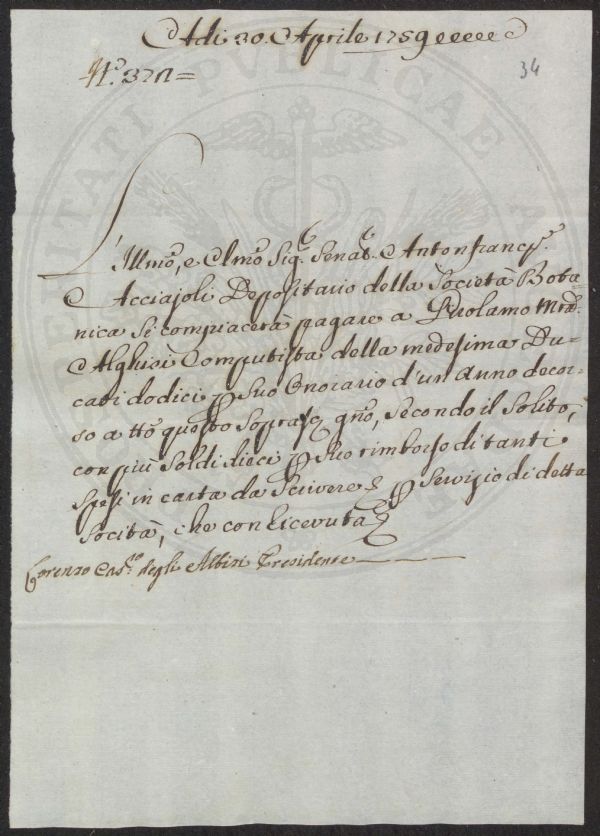 Adi 30. Aprile 1759
N.° 371=
34
L'Illmo, e Clmo Sig.r Senat.e Antonfranc.o
Acciajoli Depositario della Società Bota=
nica Si compiacerà pagare a Girolamo M.a
Alghisi Computista della medesima Du=
cati dodici p Suo Onorario d'un anno decor=
so a tto questo soprad.o gno, Secondo il Solito,
con più Soldi dieci p Suo rimborso di tanti
Spesi in carta da Scrivere p Servizio di detta
Socità, che con Ricevuta
Lorenzo Gas.ro degli Albizi Presidente
PUBLICAE